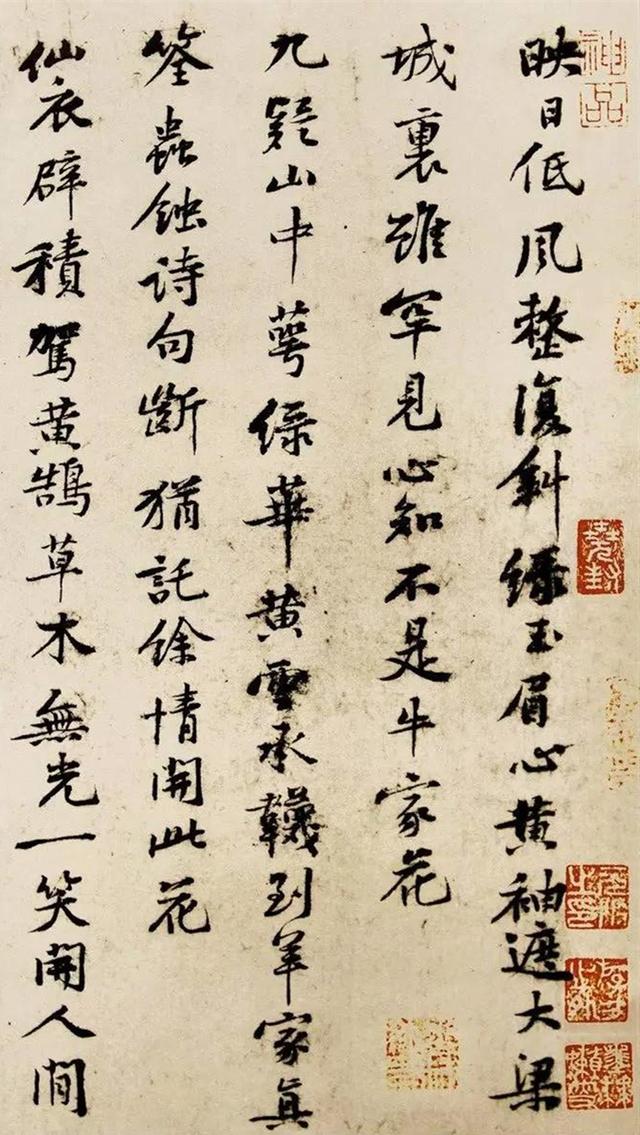 映日低風整復斜綠玉眉心黃袖遮大梁
城裏雖罕見心知不是牛家花
九疑山中萼綠華黃雲承韈到羊家真
筌蟲蝕詩句斷猶託餘情開此花
仙衣襞積駕黃鵠草木無光一笑開人間
神品